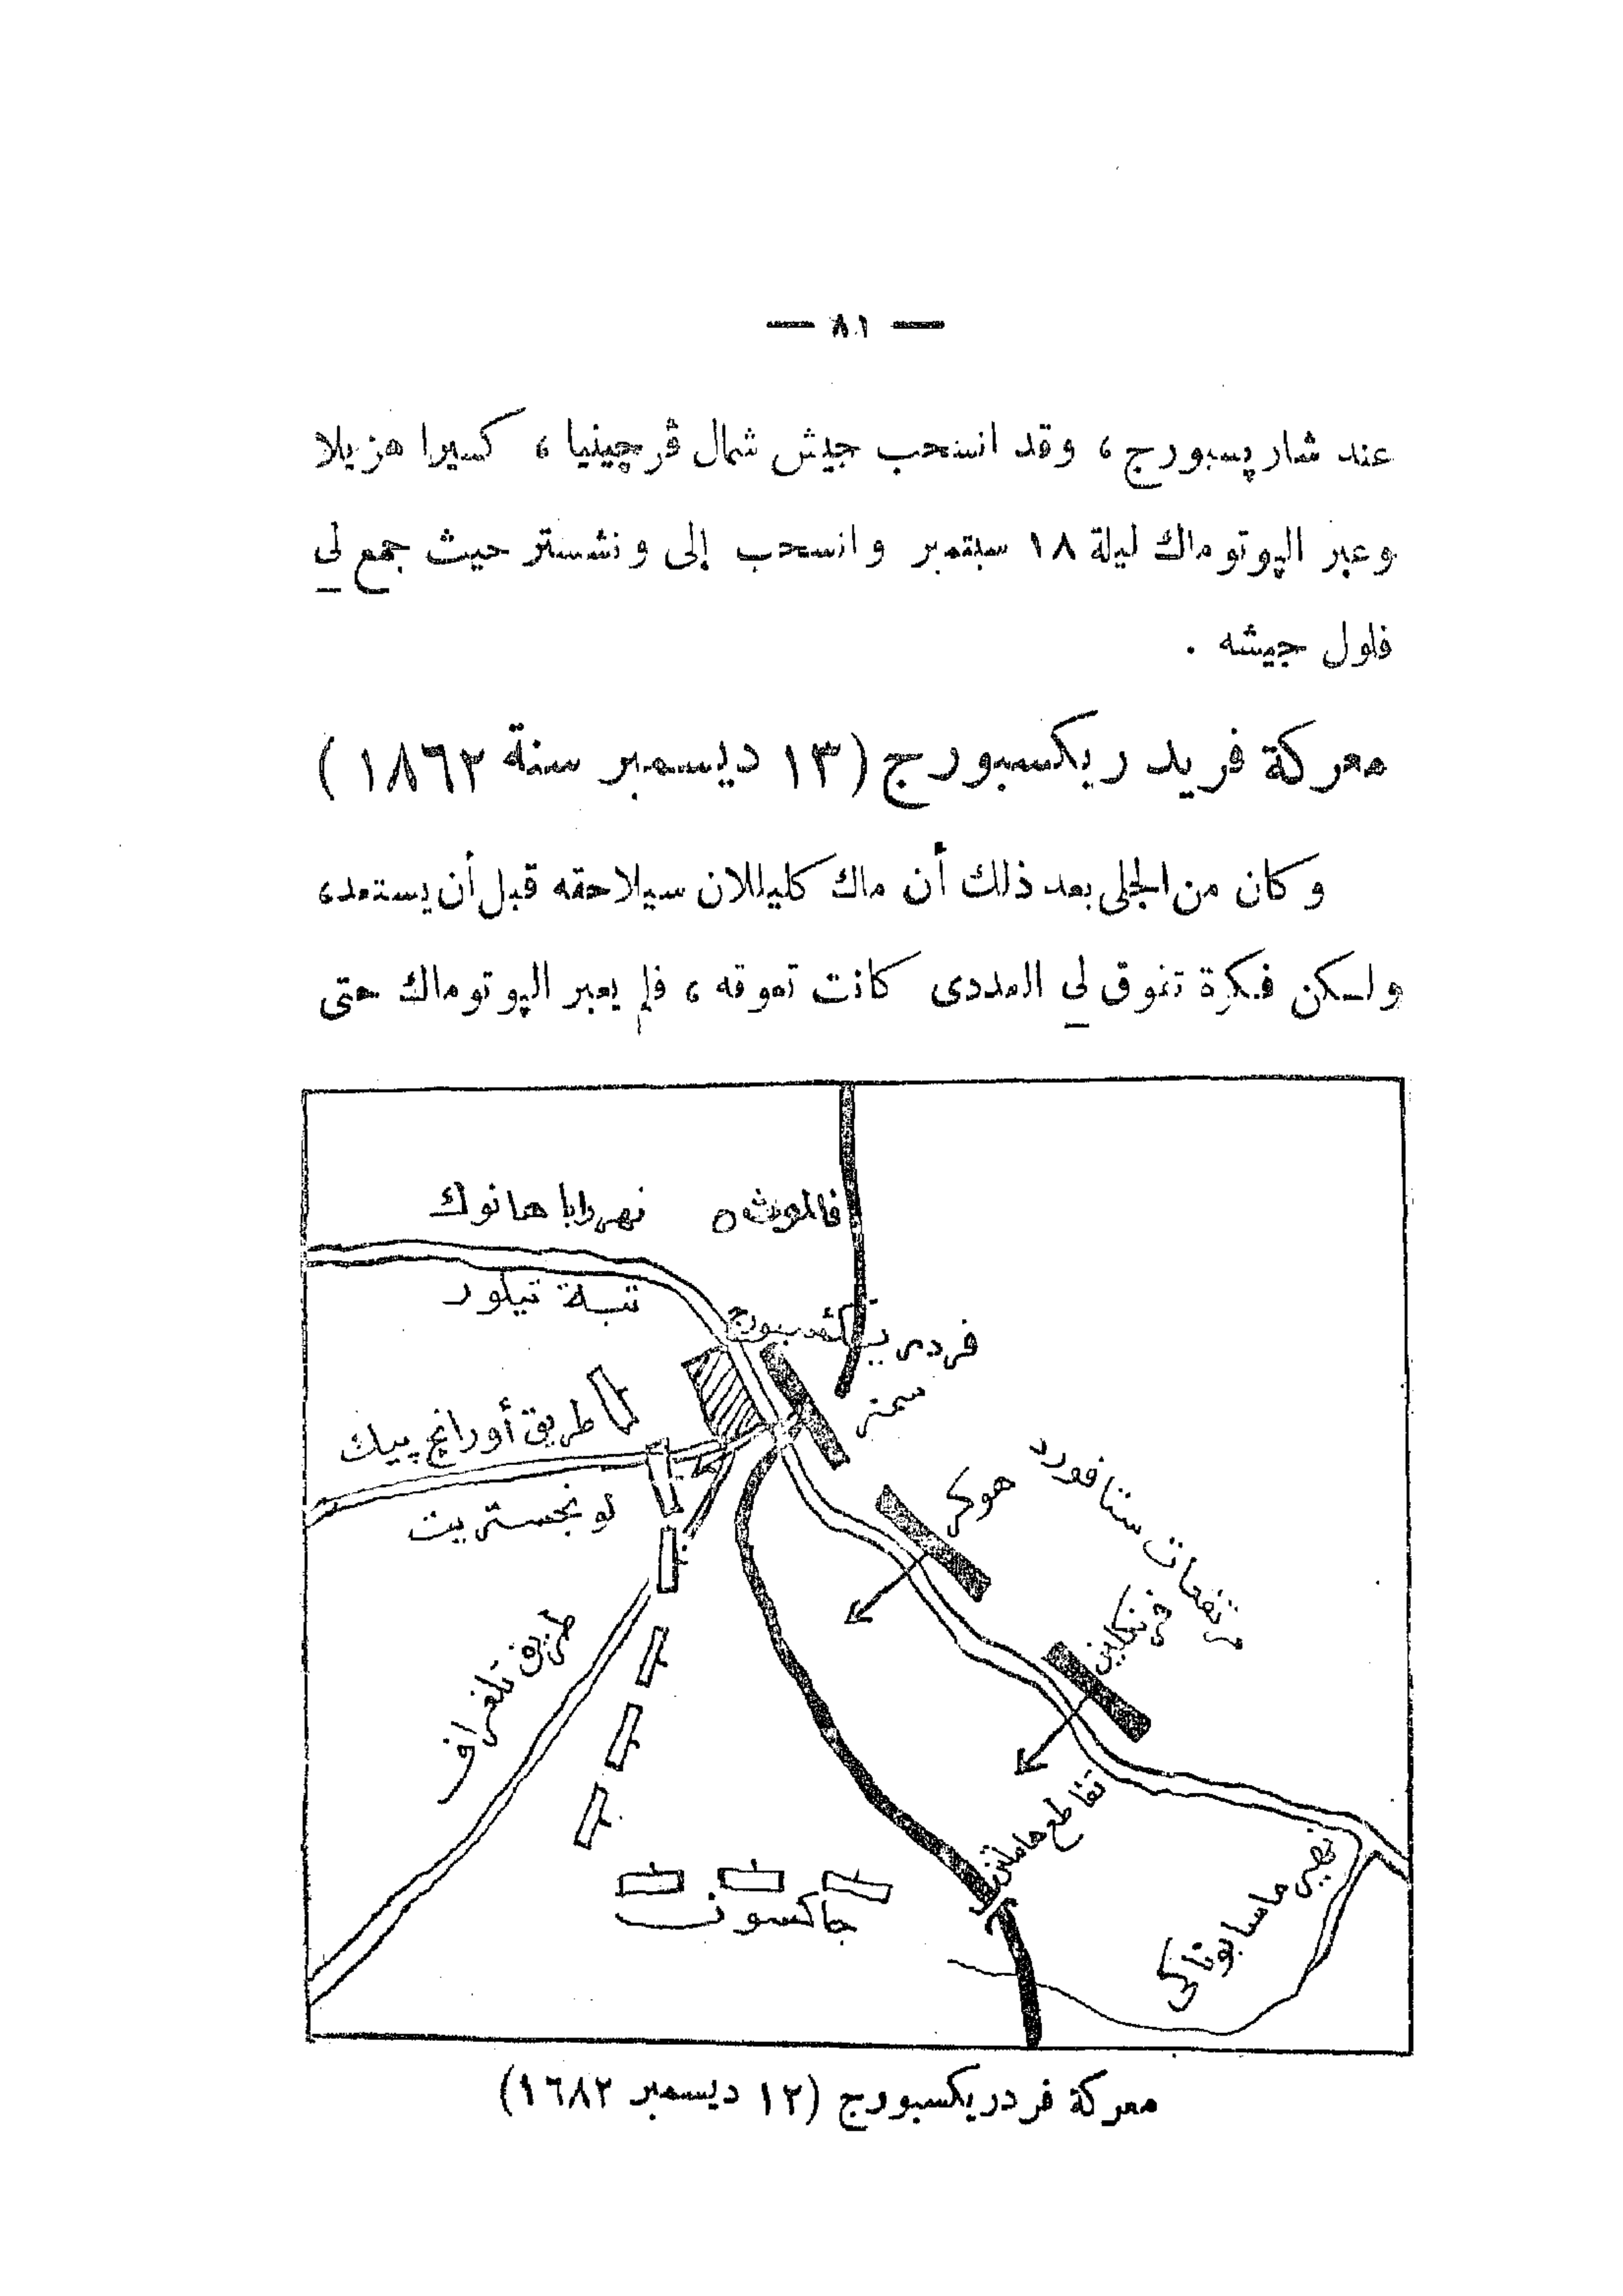 — ٨١ —
عند شارپسبورج ، وقد انسحب جيش شمال ڤرچينيا ، كسيرا هزيلا
وعبر الپوتوماك ليلة ١٨ سبتمبر وانسحب إلى ونشستر حيث جمع لى
فلول جيشه .
معركة فريدريكسبورج (١٣ ديسمبر سنة ١٨٦٢ )
وكان من الجلى بعد ذلك أن ماك كليللان سيلاحقه قبل أن يستعد ،
ولكن فكرة تفوق لى العددى كانت تعوقه ، فلم يعبر الپوتوماك حتى
فالموث
نهر رابا هانوك
تبة تيلور
فردريكسبورج
سمنر
طريق أورانج پيك
لونجستريت
هوكر
مرتفعات ستافورد
فرنكلين
طريق تلغراف
تقاطع هاملتن
جاكسون
نهير ماسابوناكى
معركة فردريكسبورج (١٢ ديسمبر ١٦٨٢)